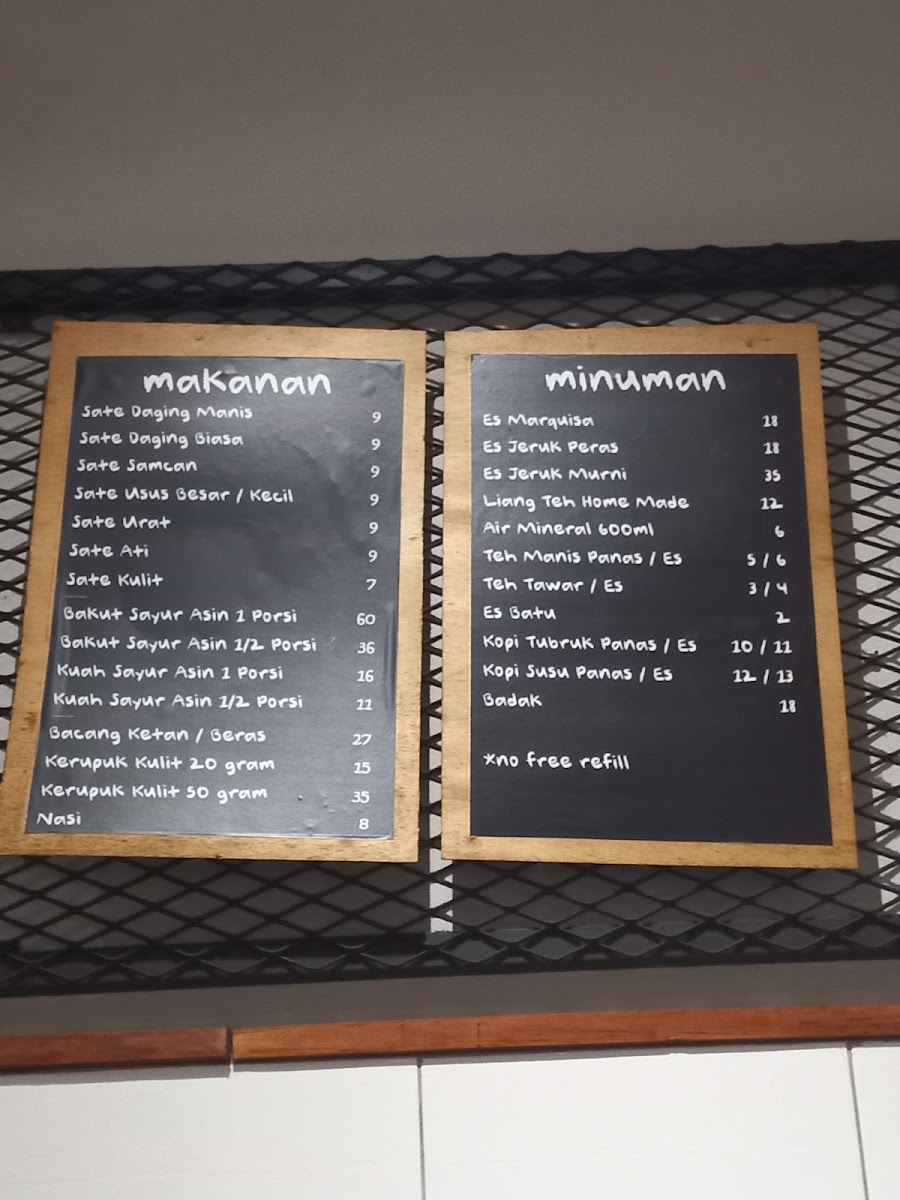 makanan
Sate Daging Manis 9
Sate Daging Biasa 9
Sate Samcan 9
Sate Usus Besar / Kecil 9
Sate Urat 9
Sate Ati 9
Sate Kulit 7
Bakut Sayur Asin 1 Porsi 60
Bakut Sayur Asin 1/2 Porsi 36
Kuah Sayur Asin 1 Porsi 16
Kuah Sayur Asin 1/2 Porsi 11
Bacang Ketan / Beras 27
Kerupuk Kulit 20 gram 15
Kerupuk Kulit 50 gram 35
Nasi 8
minuman
Es Marquisa 18
Es Jeruk Peras 18
Es Jeruk Murni 35
Liang Teh Home Made 12
Air Mineral 600ml 6
Teh Manis Panas / Es 5 / 6
Teh Tawar / Es 3 / 4
Es Batu 2
Kopi Tubruk Panas / Es 10 / 11
Kopi Susu Panas / Es 12 / 13
Badak 18
*no free refill